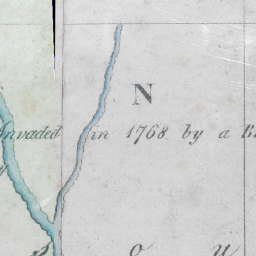 N
invaded in 1768 by a
o u